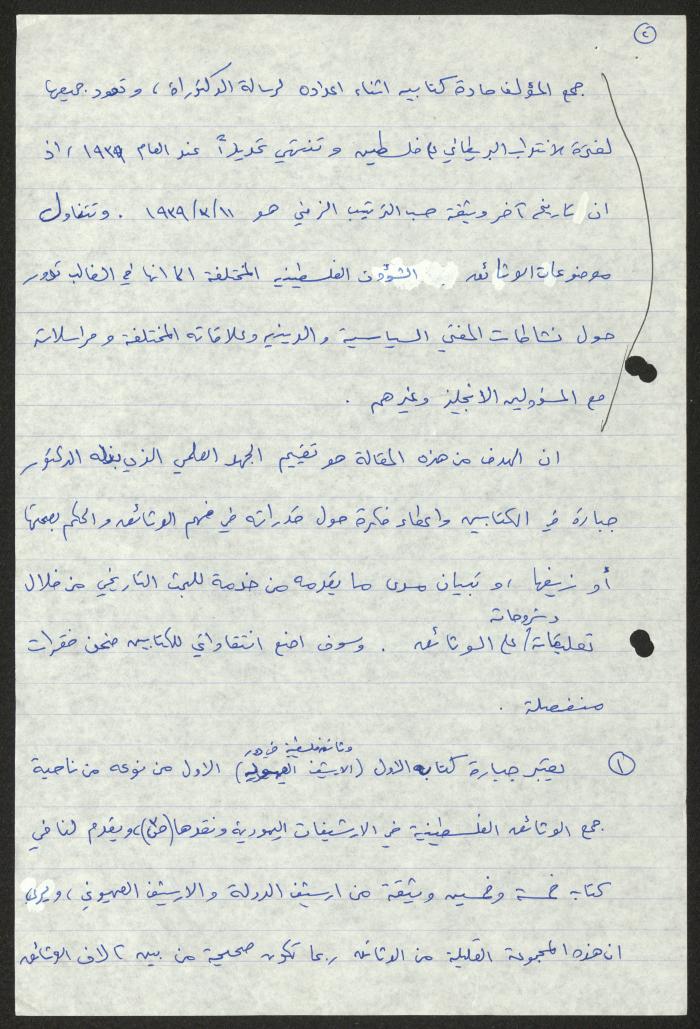 ٢
جمع المؤلف مادة كتابيه اثناء اعداده لرسالة الدكتوراة ، وتعود جميعها
لفترة الانتداب البريطاني على فلسطين وتنتهي تحديداً عند العام ١٩٣٩ ، اذ
ان تاريخ آخر وثيقة حسب الترتيب الزمني هو ١٩٣٩/٣/١١ . وتتناول
موضوعات الوثائق الشؤون الفلسطينيه المختلفة الا انها في الغالب تدور
حول نشاطات المفتي السياسية والدينيه وعلاقاته المختلفة ومراسلاته
مع المسؤولين الانجليز وغيرهم .
ان الهدف من هذه المقالة هو تقييم الجهد العلمي الذي بذله الدكتور
جبارة في الكتابين واعطاء فكرة حول قدراته في فهم الوثائق والحكم بصحتها
أو زيفها ، وتبيان مدى ما يقدمه من خدمة للبحث التاريخي من خلال
وشروحاته
تعليقاته / على الوثائق . وسوف اضع انتقاداتي للكتابين ضمن فقرات
منفصلة .
وثائق فلسطينية في دور
١ يعتبر جبارة كتابه الاول (الارشيف الصهيونية) الاول من نوعه من ناحية
جمع الوثائق الفلسطينية في الارشيفات اليهودية ونقدها (ص٣)، ويقدم لنا في
كتابه خمسة وخمسين وثيقة من ارشيف الدولة والارشيف الصهيوني ، ويرى
ان هذه المجموعة القليلة من الوثائق ربما تكون صحيحة من بين آلاف الوثائق